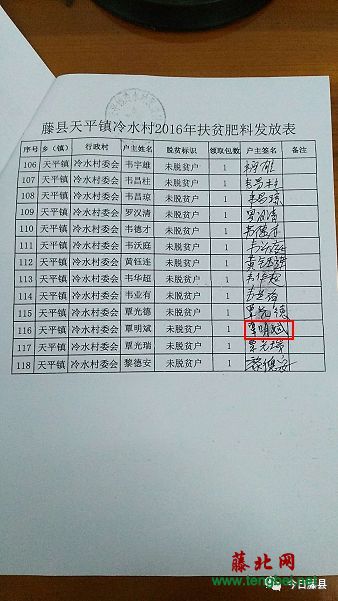 藤县天平镇冷水村2016年扶贫肥料发放表
序号 乡（镇） 行政村 户主姓名 脱贫标识 领取包数 户主签名 备注
106 天平镇 冷水村委会 韦宇雄 未脱贫户 1
107 天平镇 冷水村委会 韦昌柱 未脱贫户 1 韦昌柱
108 天平镇 冷水村委会 韦昌琼 未脱贫户 1 韦昌琼
109 天平镇 冷水村委会 罗汉清 未脱贫户 1 罗汉清
110 天平镇 冷水村委会 韦德才 未脱贫户 1 韦德才
111 天平镇 冷水村委会 韦沃庭 未脱贫户 1 韦沃庭
112 天平镇 冷水村委会 黄钰连 未脱贫户 1 黄钰连
113 天平镇 冷水村委会 韦华超 未脱贫户 1 韦华超
114 天平镇 冷水村委会 韦业有 未脱贫户 1
115 天平镇 冷水村委会 覃光德 未脱贫户 1 覃光德
116 天平镇 冷水村委会 覃明斌 未脱贫户 1 覃明斌
117 天平镇 冷水村委会 覃光瑞 未脱贫户 1 覃光瑞
118 天平镇 冷水村委会 黎德安 未脱贫户 1 黎德安
藤北网
www.tengbei.net
今日藤县